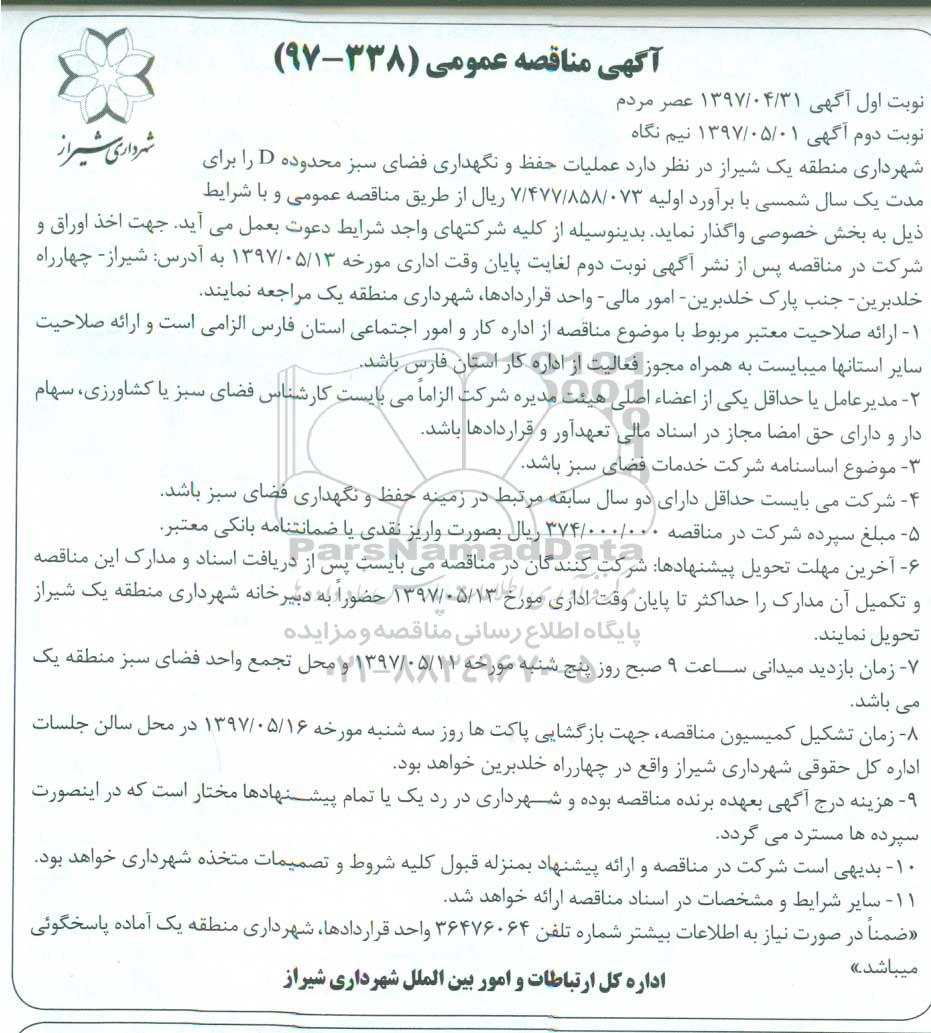 آگهی مناقصه عمومی (۳۳۸-۹۷)
شهرداری شیراز
نوبت اول آگهی ۱۳۹۷/۰۴/۳۱ عصر مردم
نوبت دوم آگهی ۱۳۹۷/۰۵/۰۱ نیم نگاه
شهرداری منطقه یک شیراز در نظر دارد عملیات حفظ و نگهداری فضای سبز محدوده D را برای
مدت یک سال شمسی با برآورد اولیه ۷/۴۷۷/۸۵۸/۰۷۳ ریال از طریق مناقصه عمومی و با شرایط
ذیل به بخش خصوصی واگذار نماید. بدینوسیله از کلیه شرکتهای واجد شرایط دعوت بعمل می آید. جهت اخذ اوراق و
شرکت در مناقصه پس از نشر آگهی نوبت دوم لغایت پایان وقت اداری مورخه ۱۳۹۷/۰۵/۱۳ به آدرس: شیراز- چهارراه
خلدبرین- جنب پارک خلدبرین- امور مالی- واحد قراردادها، شهرداری منطقه یک مراجعه نمایند.
۱- ارائه صلاحیت معتبر مربوط با موضوع مناقصه از اداره کار و امور اجتماعی استان فارس الزامی است و ارائه صلاحیت
سایر استانها میبایست به همراه مجوز فعالیت از اداره کار استان فارس باشد.
۲- مدیرعامل یا حداقل یکی از اعضاء اصلی هیئت مدیره شرکت الزاماً می بایست کارشناس فضای سبز یا کشاورزی، سهام
دار و دارای حق امضا مجاز در اسناد مالی تعهدآور و قراردادها باشد.
۳- موضوع اساسنامه شرکت خدمات فضای سبز باشد.
۴- شرکت می بایست حداقل دارای دو سال سابقه مرتبط در زمینه حفظ و نگهداری فضای سبز باشد.
۵- مبلغ سپرده شرکت در مناقصه ۳۷۴/۰۰۰/۰۰۰ ریال بصورت واریز نقدی یا ضمانتنامه بانکی معتبر.
ParsNamadData
۶- آخرین مهلت تحویل پیشنهادها: شرکت کنندگان در مناقصه می بایست پس از دریافت اسناد و مدارک این مناقصه
و تکمیل آن مدارک را حداکثر تا پایان وقت اداری مورخ ۱۳۹۷/۰۵/۱۳ حضوراً به دبیرخانه شهرداری منطقه یک شیراز
تحویل نمایند.
پایگاه اطلاع رسانی مناقصه و مزایده
۷- زمان بازدید میدانی ساعت ۹ صبح روز پنج شنبه مورخه ۱۳۹۷/۰۵/۱۱ و محل تجمع واحد فضای سبز منطقه یک
۰۲۱-۸۸۳۴۹۶۷۰-۵
می باشد.
۸- زمان تشکیل کمیسیون مناقصه، جهت بازگشایی پاکت ها روز سه شنبه مورخه ۱۳۹۷/۰۵/۱۶ در محل سالن جلسات
اداره کل حقوقی شهرداری شیراز واقع در چهارراه خلدبرین خواهد بود.
۹- هزینه درج آگهی بعهده برنده مناقصه بوده و شهرداری در رد یک یا تمام پیشنهادها مختار است که در اینصورت
سپرده ها مسترد می گردد.
۱۰- بدیهی است شرکت در مناقصه و ارائه پیشنهاد بمنزله قبول کلیه شروط و تصمیمات متخذه شهرداری خواهد بود.
۱۱- سایر شرایط و مشخصات در اسناد مناقصه ارائه خواهد شد.
«ضمناً در صورت نیاز به اطلاعات بیشتر شماره تلفن ۳۶۴۷۶۰۶۴ واحد قراردادها، شهرداری منطقه یک آماده پاسخگوئی
میباشد.»
اداره کل ارتباطات و امور بین الملل شهرداری شیراز